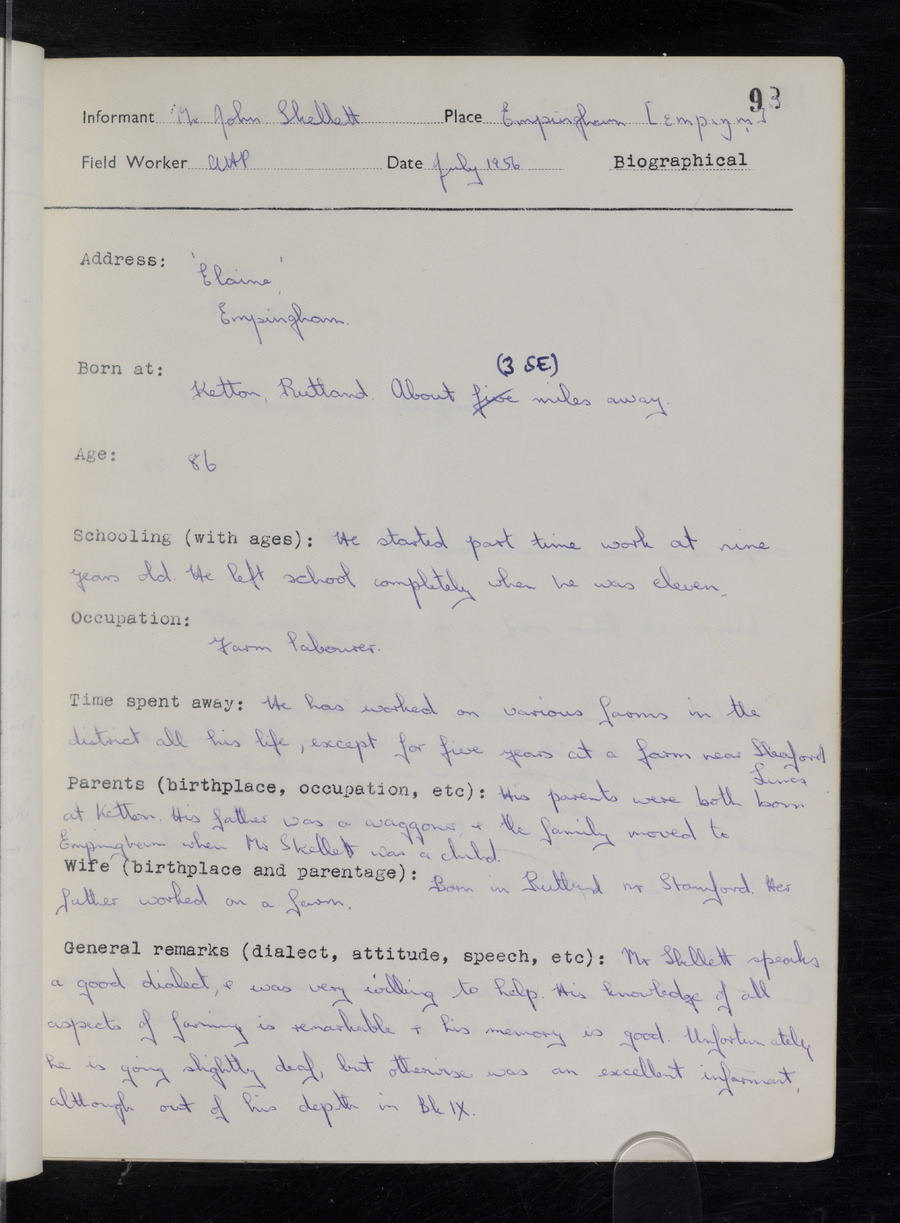 93
Informant Mr John Skellett Place Empingham [empɪŋm̩]
Field Worker Date July 1956 Biographical
Address: 'Elaine',
Empingham.
(3 SE)
Born at: Ketton, Rutland. About five miles away.
Age: 86
Schooling (with ages): He started part time work at nine
years old. He left school completely when he was eleven.
Occupation:
Farm labourer.
Time spent away: He has worked on various farms in the
district all his life, except for five years at a farm near Sleaford
Lincs
Parents (birthplace, occupation, etc): His parents were both born
at Ketton. His father was a waggoner, & the family moved to
Empingham when Mr Skellett was a child.
Wife (birthplace and parentage): Born in Rutland nr. Stamford. Her
father worked on a farm.
General remarks (dialect, attitude, speech, etc): Mr Skellett speaks
a good dialect, & was very willing to help. His knowledge of all
aspects of farming is remarkable & his memory is good. Unfortunately
he is going slightly deaf, but otherwise was an excellent informant,
although out of his depth in Bk IX.